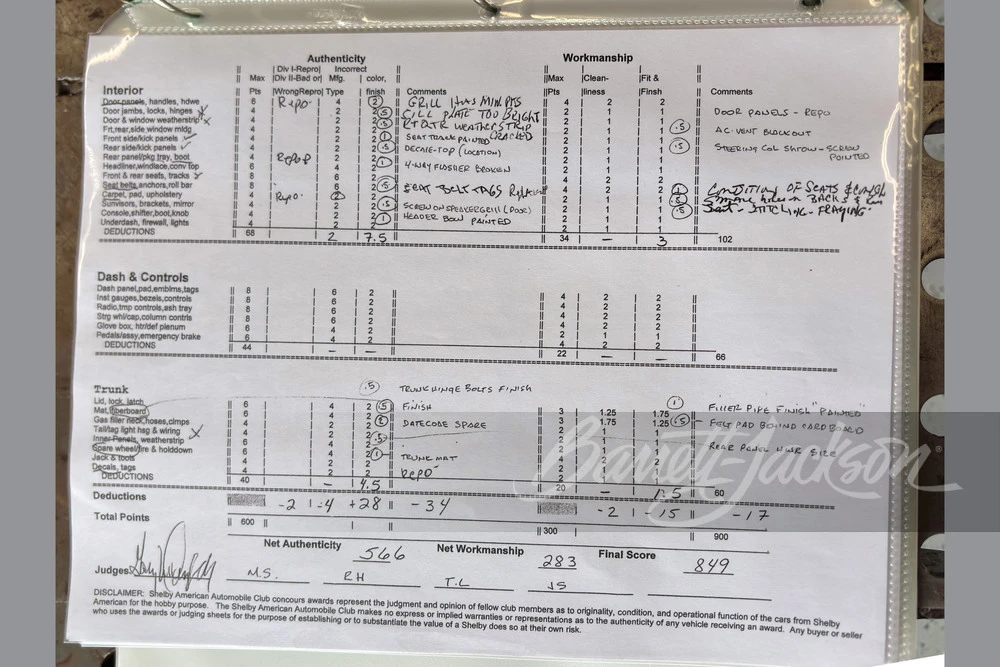 Authenticity Workmanship
|Div I-Repro| Incorrect
Max Div II-Bad or| Mfg. |color, Max |Clean- |Fit &
Interior Pts |WrongRepro| Type |finish Comments Pts |liness |Finsh Comments
Door panels, handles, hdwe 8 Repo 4 (2) GRILL HAS MIN PTS 4 2 2
Door jambs, locks, hinges 4 2 2 (.5) SILL PLATE TOO BRIGHT 2 1 1 DOOR PANELS - REPO
Door & window weatherstrip 4 2 2 (.5) RT QTR WEATHERSTRIP 2 1 1
Frt,rear,side window mldg 4 2 2 CRACKED 2 1 1 (.5) AC-VENT BLACKOUT
Front side/kick panels 4 2 2 (1) SEAT TRACK PAINTED 2 1 1
Rear side/kick panels 4 2 2 (.5) DECALE-TOP (LOCATION) 2 1 1 (.5) STEERING COL SHROW-SCREW
Rear panel/pkg tray, boot 4 Repop 2 2 (1) 2 1 1 PAINTED
Headliner,windlace,conv top 6 4 2 4-WAY FLUSHER BROKEN
Front & rear seats, tracks 8 6 2 4 2 2
Seat belts,anchors,roll bar 4 2 2 (.5) SEAT BELT TAGS 2 1 1 (1) CONDITION OF SEATS
Carpet, pad, upholstery 4 Repo (2) 2 2 1 1
Sunvisors, brackets, mirror 4 2 2 (.5) SCREW ON SPEAKER GRILL (DOOR) 2 1 1 (.5) Seat - STITCHING - FRAYING
Console,shifter,boot,knob 4 2 2 (1) HEADER BOW PAINTED 2 1 1
Underdash, firewall, lights 4 2 2 2 1 1
DEDUCTIONS 68 2 7.5 34 - 3 102
Dash & Controls
Dash panel,pad,emblms,tags 8 6 2 4 2 2
Inst gauges,bezels,controls 8 6 2 4 2 2
Radio,tmp controls,ash tray 8 6 2 4 2 2
Strg whl/cap,column contrls 8 6 2 4 2 2
Glove box, htr/def plenum 6 4 2 2 1 1
Pedals/assy,emergency brake 6 4 2 4 2 2
DEDUCTIONS 44 - - 22 - - 66
(.5) TRUNK HINGE BOLTS FINISH
Trunk
Lid, lock, latch 6 4 2 (.5) FINISH 3 1.25 1.75 (1) FILLER PIPE FINISH "PAINTED"
Mat, fiberboard 6 4 2 (2) DATECODE SPARE 3 1.75 1.25 (.5) FELT PAD BEHIND CARDBOARD
Gas filler neck,hoses,clmps 4 2 2 2 1 1
Tail/tag light hsg & wiring 4 2 2 2 1 1 REAR PANEL HWR SIZE
Inner Panels, weatherstrip 6 4 2 (.5)
Spare wheel/tire & holddown 6 4 2 (1) TRUNK MAT
Jack & tools 4 2 2 Repo
Decals, tags 4 2 2
DEDUCTIONS 40 - 4.5 20 - 1.5 60
Deductions -2 -4 +28 -34 -2 -15 -17
Total Points 600 300 900
Net Authenticity 566 Net Workmanship 283 Final Score 849
Judges: M.S. RH T.L JS
DISCLAIMER: Shelby American Automobile Club concours awards represent the judgment and opinion of fellow club members as to originality, condition, and operational function of the cars from Shelby
American for the hobby purpose. The Shelby American Automobile Club makes no express or implied warranties or representations as to the authenticity of any vehicle receiving an award. Any buyer or seller
who uses the awards or judging sheets for the purpose of establishing or to substantiate the value of a Shelby does so at their own risk.
Barrett-Jackson